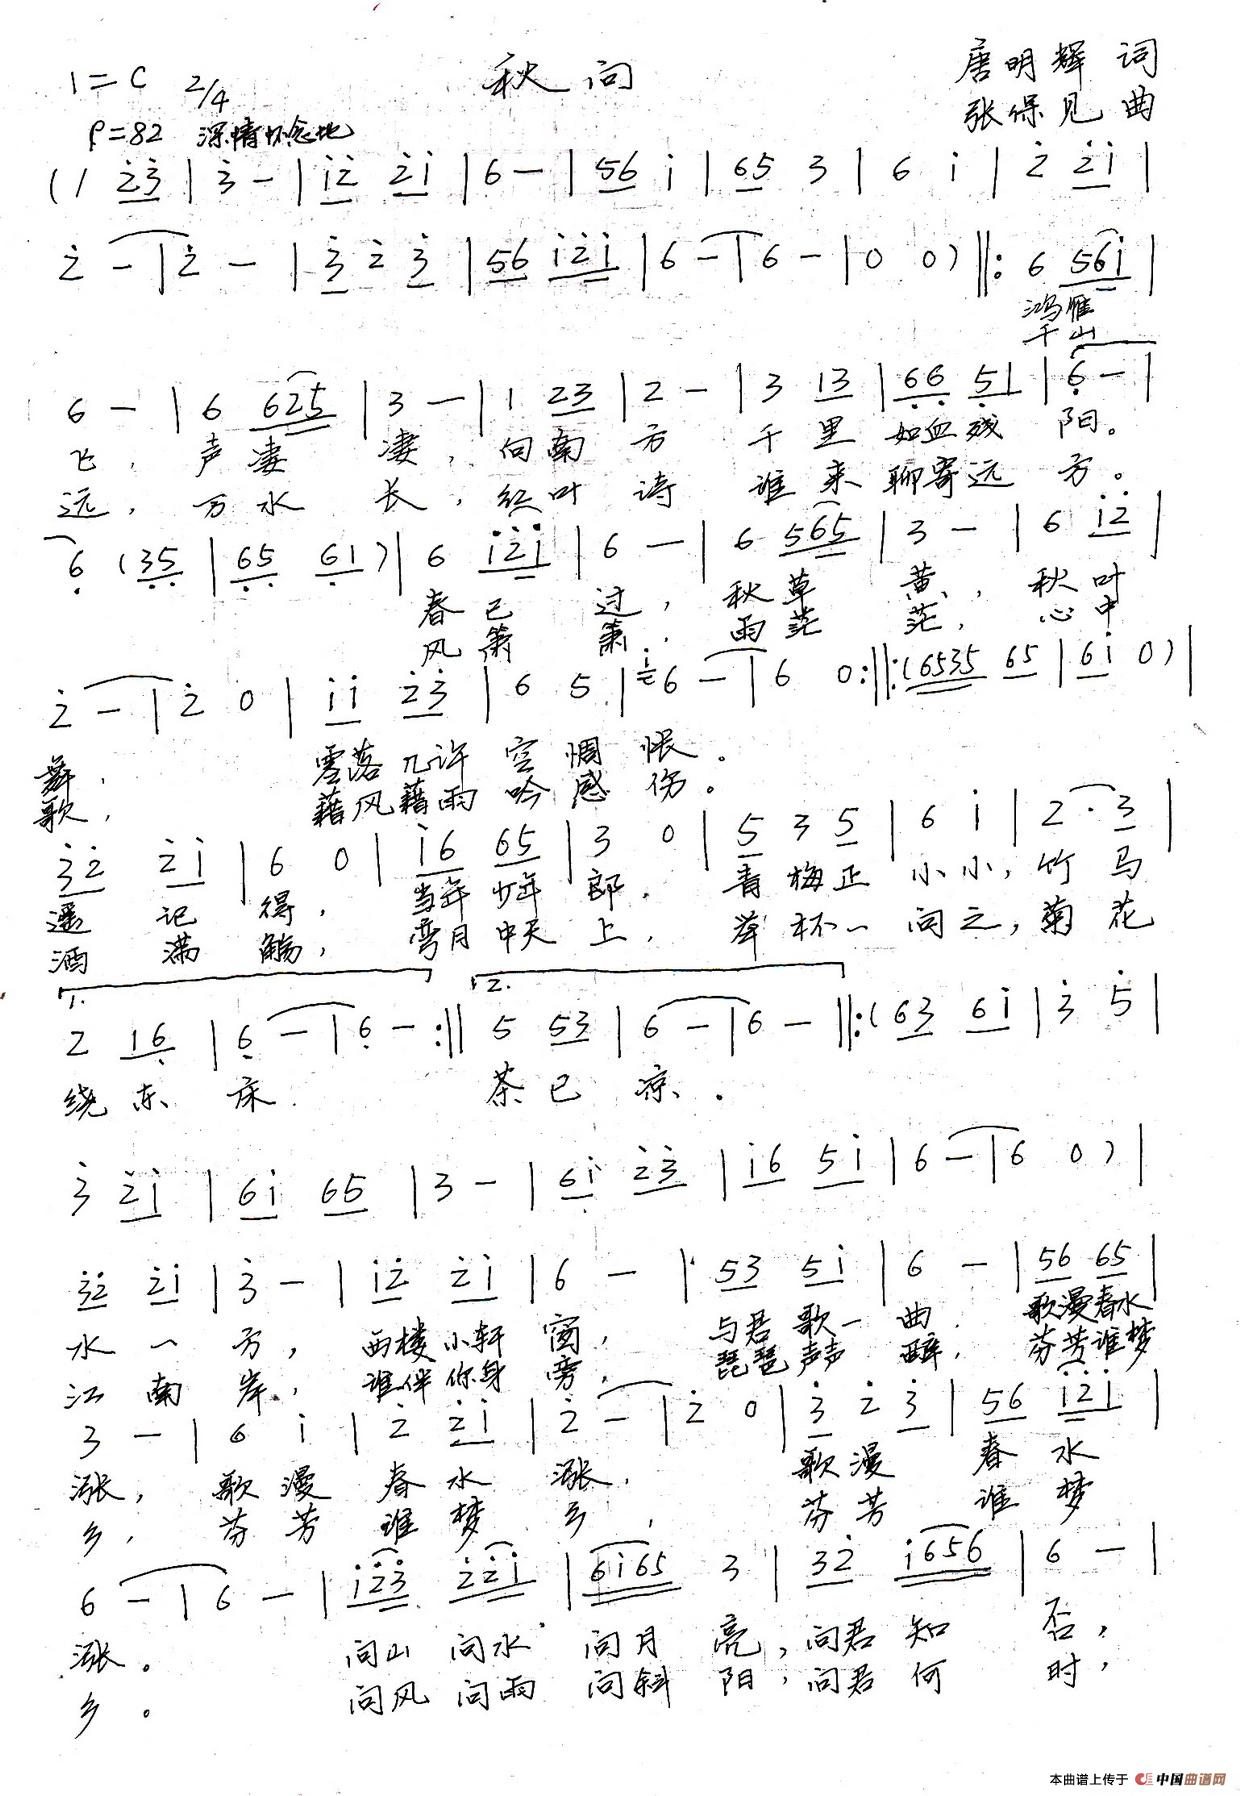 秋问
1=C 2/4
唐明辉 词
张保见 曲
♩=82 深情怀念地
(1 2̇3̇ | 3̇ - | i2̇ 2̇i | 6 - | 56 i | 65 3 | 6 i | 2̇ 2̇i |
2̇ - | 2̇ - | 3̇ 2̇ 3̇ | 56 i2̇i | 6 - | 6 - | 0 0) ‖: 6 56i |
鸿雁
千山
6 - | 6 625 | 3 - | 1 23 | 2 - | 3 13 | 6̣6̣ 5̣1 | 6̣ - |
飞, 声凄 凄, 向南方 千里 如血残 阳。
远, 万水 长, 红叶诗 谁来 聊寄远 方。
6̣ (3̣5̣ | 6̣5̣ 6̣1) | 6 i2̇i | 6 - | 6 565 | 3 - | 6 i2̇ |
春已 过, 秋草 黄, 秋叶
风箫 箫, 雨茫 茫, 心中
2̇ - | 2̇ 0 | ii 2̇3̇ | 6 5 | 6 - | 6 0 :‖: (6535 65 | 6i 0) |
舞, 零落几许 空惆怅。
歌, 藉风藉雨 吟感伤。
3̇2̇ 2̇i | 6 0 | i6 65 | 3 0 | 5 3 5 | 6 i | 2 · 3 |
遥记 得, 当年少年 郎, 青梅正 小小, 竹马
酒满 觞, 弯月中天 上, 举杯一 问之, 菊花
1. 2.
2 16̣ | 6̣ - | 6̣ - :‖ 5 53 | 6 - | 6 - ‖: (63 6i | 3̇ 5̇ |
绕东床. 茶已凉.
3̇ 2̇i | 6i 65 | 3 - | 6i 2̇3̇ | i6 5i | 6 - | 6 0) |
3̇2̇ 2̇i | 3̇ - | i2̇ 2̇i | 6 - | 53 5i | 6 - | 56 65 |
水一 方, 西楼小轩 窗, 与君歌一 曲. 歌漫春水
江南 岸, 谁伴你身 旁, 琵琶声声 醉, 芬芳谁梦
3 - | 6 i | 2̇ 2̇i | 2̇ - | 2̇ 0 | 3̇ 2̇ 3̇ | 56 i2̇i |
涨, 歌漫 春水 涨, 歌漫 春水
乡, 芬芳 谁梦 乡, 芬芳 谁梦
6 - | 6 - | i2̇3̇ 2̇2̇i | 6i65 3 | 32̇ i656 | 6 - |
涨。 问山问水 问月亮, 问君知 否,
乡。 问风问雨 问斜阳, 问君何 时,
本曲谱上传于 中国曲谱网